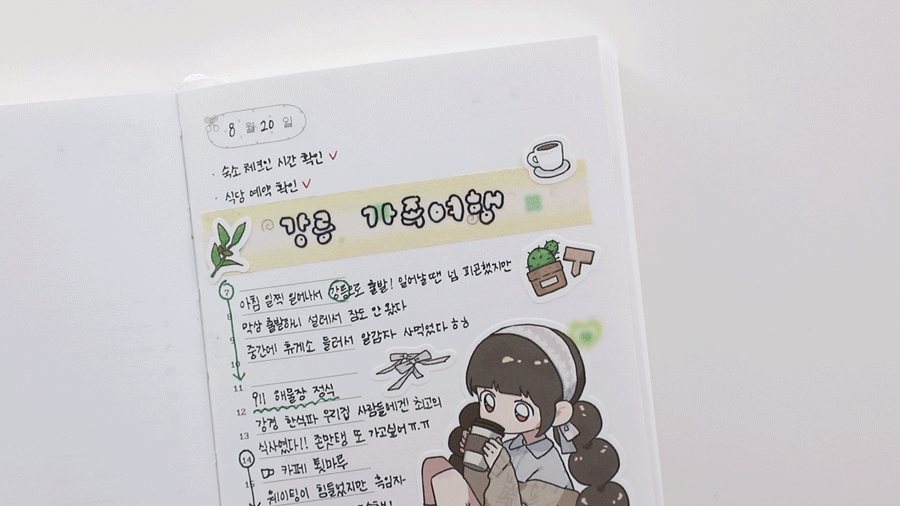 8월 20일
· 숙소 체크인 시간 확인 ✓
· 식당 예약 확인 ✓
강릉 가족여행
7 아침 일찍 일어나서 강릉으로 출발! 일어날땐 넘 피곤했지만
8 막상 출발하니 설레서 잠도 안 왔다
9 중간에 휴게소 들러서 알감자 사먹었다 ㅎㅎ
10
11 911 해물장 정식
12 강경 한식파 우리집 사람들에겐 최고의
13 식사였다!! 존맛탱 또 가고싶어ㅠ.ㅠ
14 카페 툇마루
15 웨이팅이 힘들었지만 흑임자